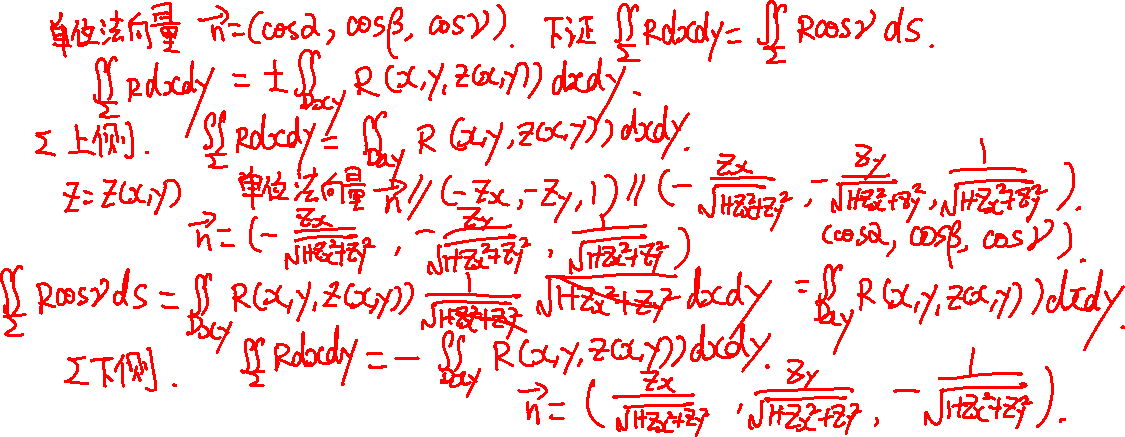 单位法向量 $\vec{n}=(\cos\alpha, \cos\beta, \cos\gamma)$. 下证 $\iint_{\Sigma} Rdxdy = \iint_{\Sigma} R\cos\gamma dS$.
$\iint_{\Sigma} Rdxdy = \pm\iint_{D_{xy}} R(x,y,z(x,y))dxdy$.
Σ上侧. $\iint_{\Sigma} Rdxdy = \iint_{D_{xy}} R(x,y,z(x,y))dxdy$.
$z=z(x,y)$ 单位法向量 $\vec{n} // (-z_x, -z_y, 1) // (-\frac{z_x}{\sqrt{1+z_x^2+z_y^2}}, -\frac{z_y}{\sqrt{1+z_x^2+z_y^2}}, \frac{1}{\sqrt{1+z_x^2+z_y^2}})$.
$\vec{n}=(-\frac{z_x}{\sqrt{1+z_x^2+z_y^2}}, -\frac{z_y}{\sqrt{1+z_x^2+z_y^2}}, \frac{1}{\sqrt{1+z_x^2+z_y^2}})$ $(\cos\alpha, \cos\beta, \cos\gamma)$.
$\iint_{\Sigma} R\cos\gamma dS = \iint_{D_{xy}} R(x,y,z(x,y))\frac{1}{\sqrt{1+z_x^2+z_y^2}}\sqrt{1+z_x^2+z_y^2}dxdy = \iint_{D_{xy}} R(x,y,z(x,y))dxdy$.
Σ下侧. $\iint_{\Sigma} Rdxdy = -\iint_{D_{xy}} R(x,y,z(x,y))dxdy$.
$\vec{n}=(\frac{z_x}{\sqrt{1+z_x^2+z_y^2}}, \frac{z_y}{\sqrt{1+z_x^2+z_y^2}}, -\frac{1}{\sqrt{1+z_x^2+z_y^2}})$.